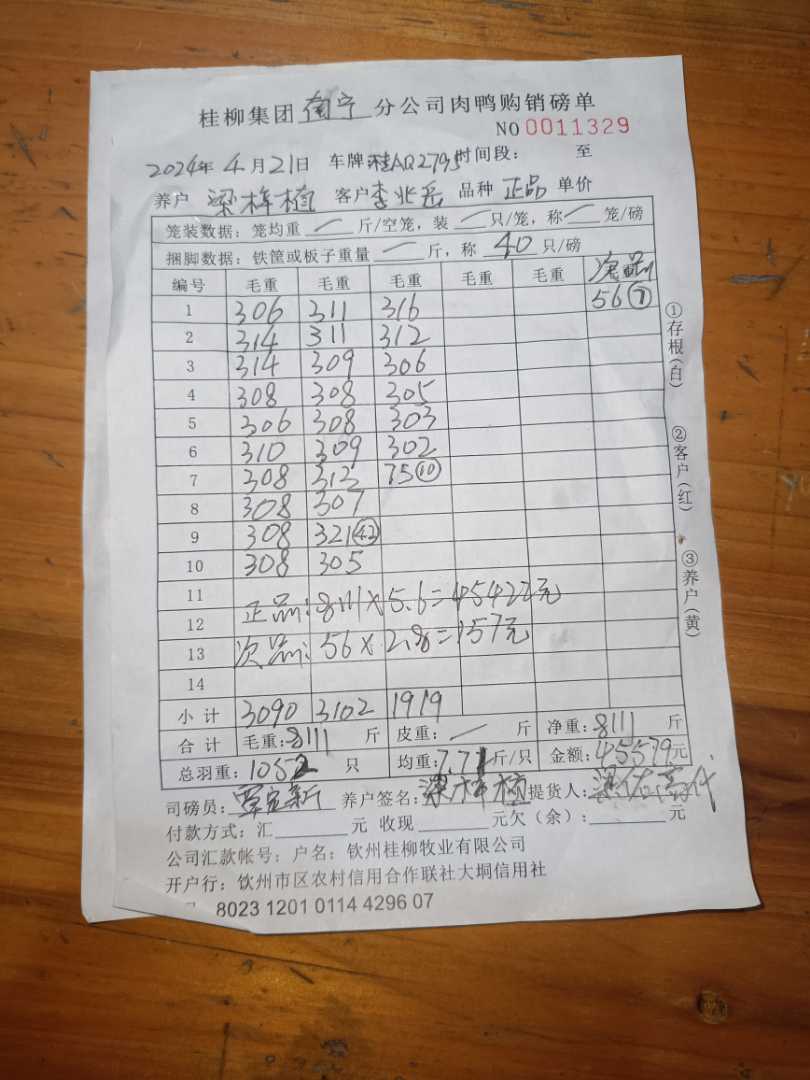 桂柳集团 南宁 分公司肉鸭购销磅单
NO 0011329
2024年 4月21日 车牌 桂AQ2795 时间段: 至
养户 梁梓植 客户 李兆岳 品种 正品 单价
笼装数据: 笼均重 — 斤/空笼, 装 — 只/笼, 称 — 笼/磅
捆脚数据: 铁筐或板子重量 — 斤, 称 40 只/磅
编号 毛重 毛重 毛重 毛重 毛重 次品
1 306 311 316 56⑦
2 314 311 312
3 314 309 306
4 308 308 305
5 306 308 303
6 310 309 302
7 308 313 75⑩
8 308 307
9 308 321㊷
10 308 305
11
12 正品: 8111×5.6=45422元
13 次品: 56×2.8=157元
14
小计 3090 3102 1919
合计 毛重: 8111 斤 皮重: — 斤 净重: 8111 斤
总羽重: 1052 只 均重: 7.71斤/只 金额: 45579元
司磅员: 养户签名: 梁梓植 提货人:
付款方式: 汇 元 收现 元欠(余): 元
公司汇款帐号: 户名: 钦州桂柳牧业有限公司
开户行: 钦州市区农村信用合作联社大垌信用社
8023 1201 0114 4296 07
①存根(白)
②客户(红)
③养户(黄)